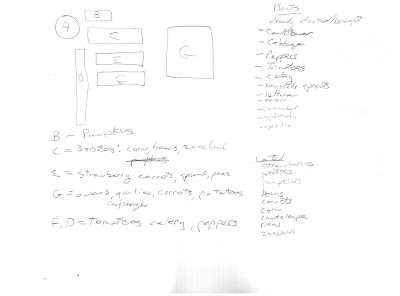 Plants
already started/bought
B
A
C
- Cauliflower
- Cabbage
E
G
- Peppers
- Tomatoes
D
- celery
- brussels sprouts
- lettuce
B - Pumpkins
C = 3 sisters: corn, beans, zucchini
E = Strawberry, carrots, spinach, peas
G = onions, garlic, carrots, potatoes
cabbage
F, D = Tomatoes, celery, peppers
strawberries
potatoes
pumpkins
beans
carrots
corn
cantelope
peas